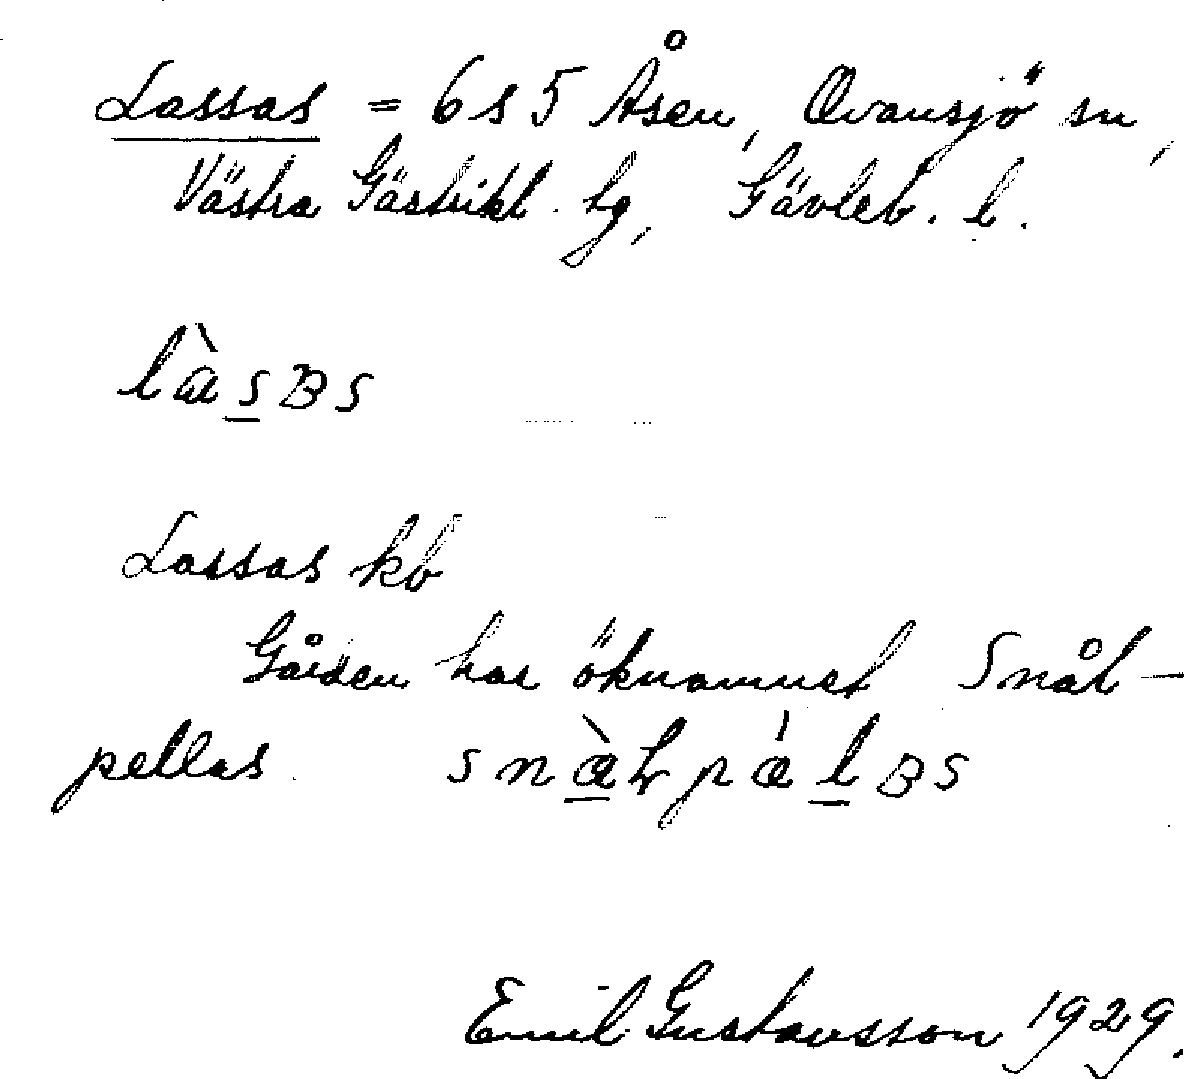 Lassas = 6 s 5 Åsen, Ovansjö sn,
Västra Gästrikl. hg, Gävleb. l.
làsʙs
Lassas kb
Gården har öknamnet Snål-
pellas
Emil Gustavsson 1929.